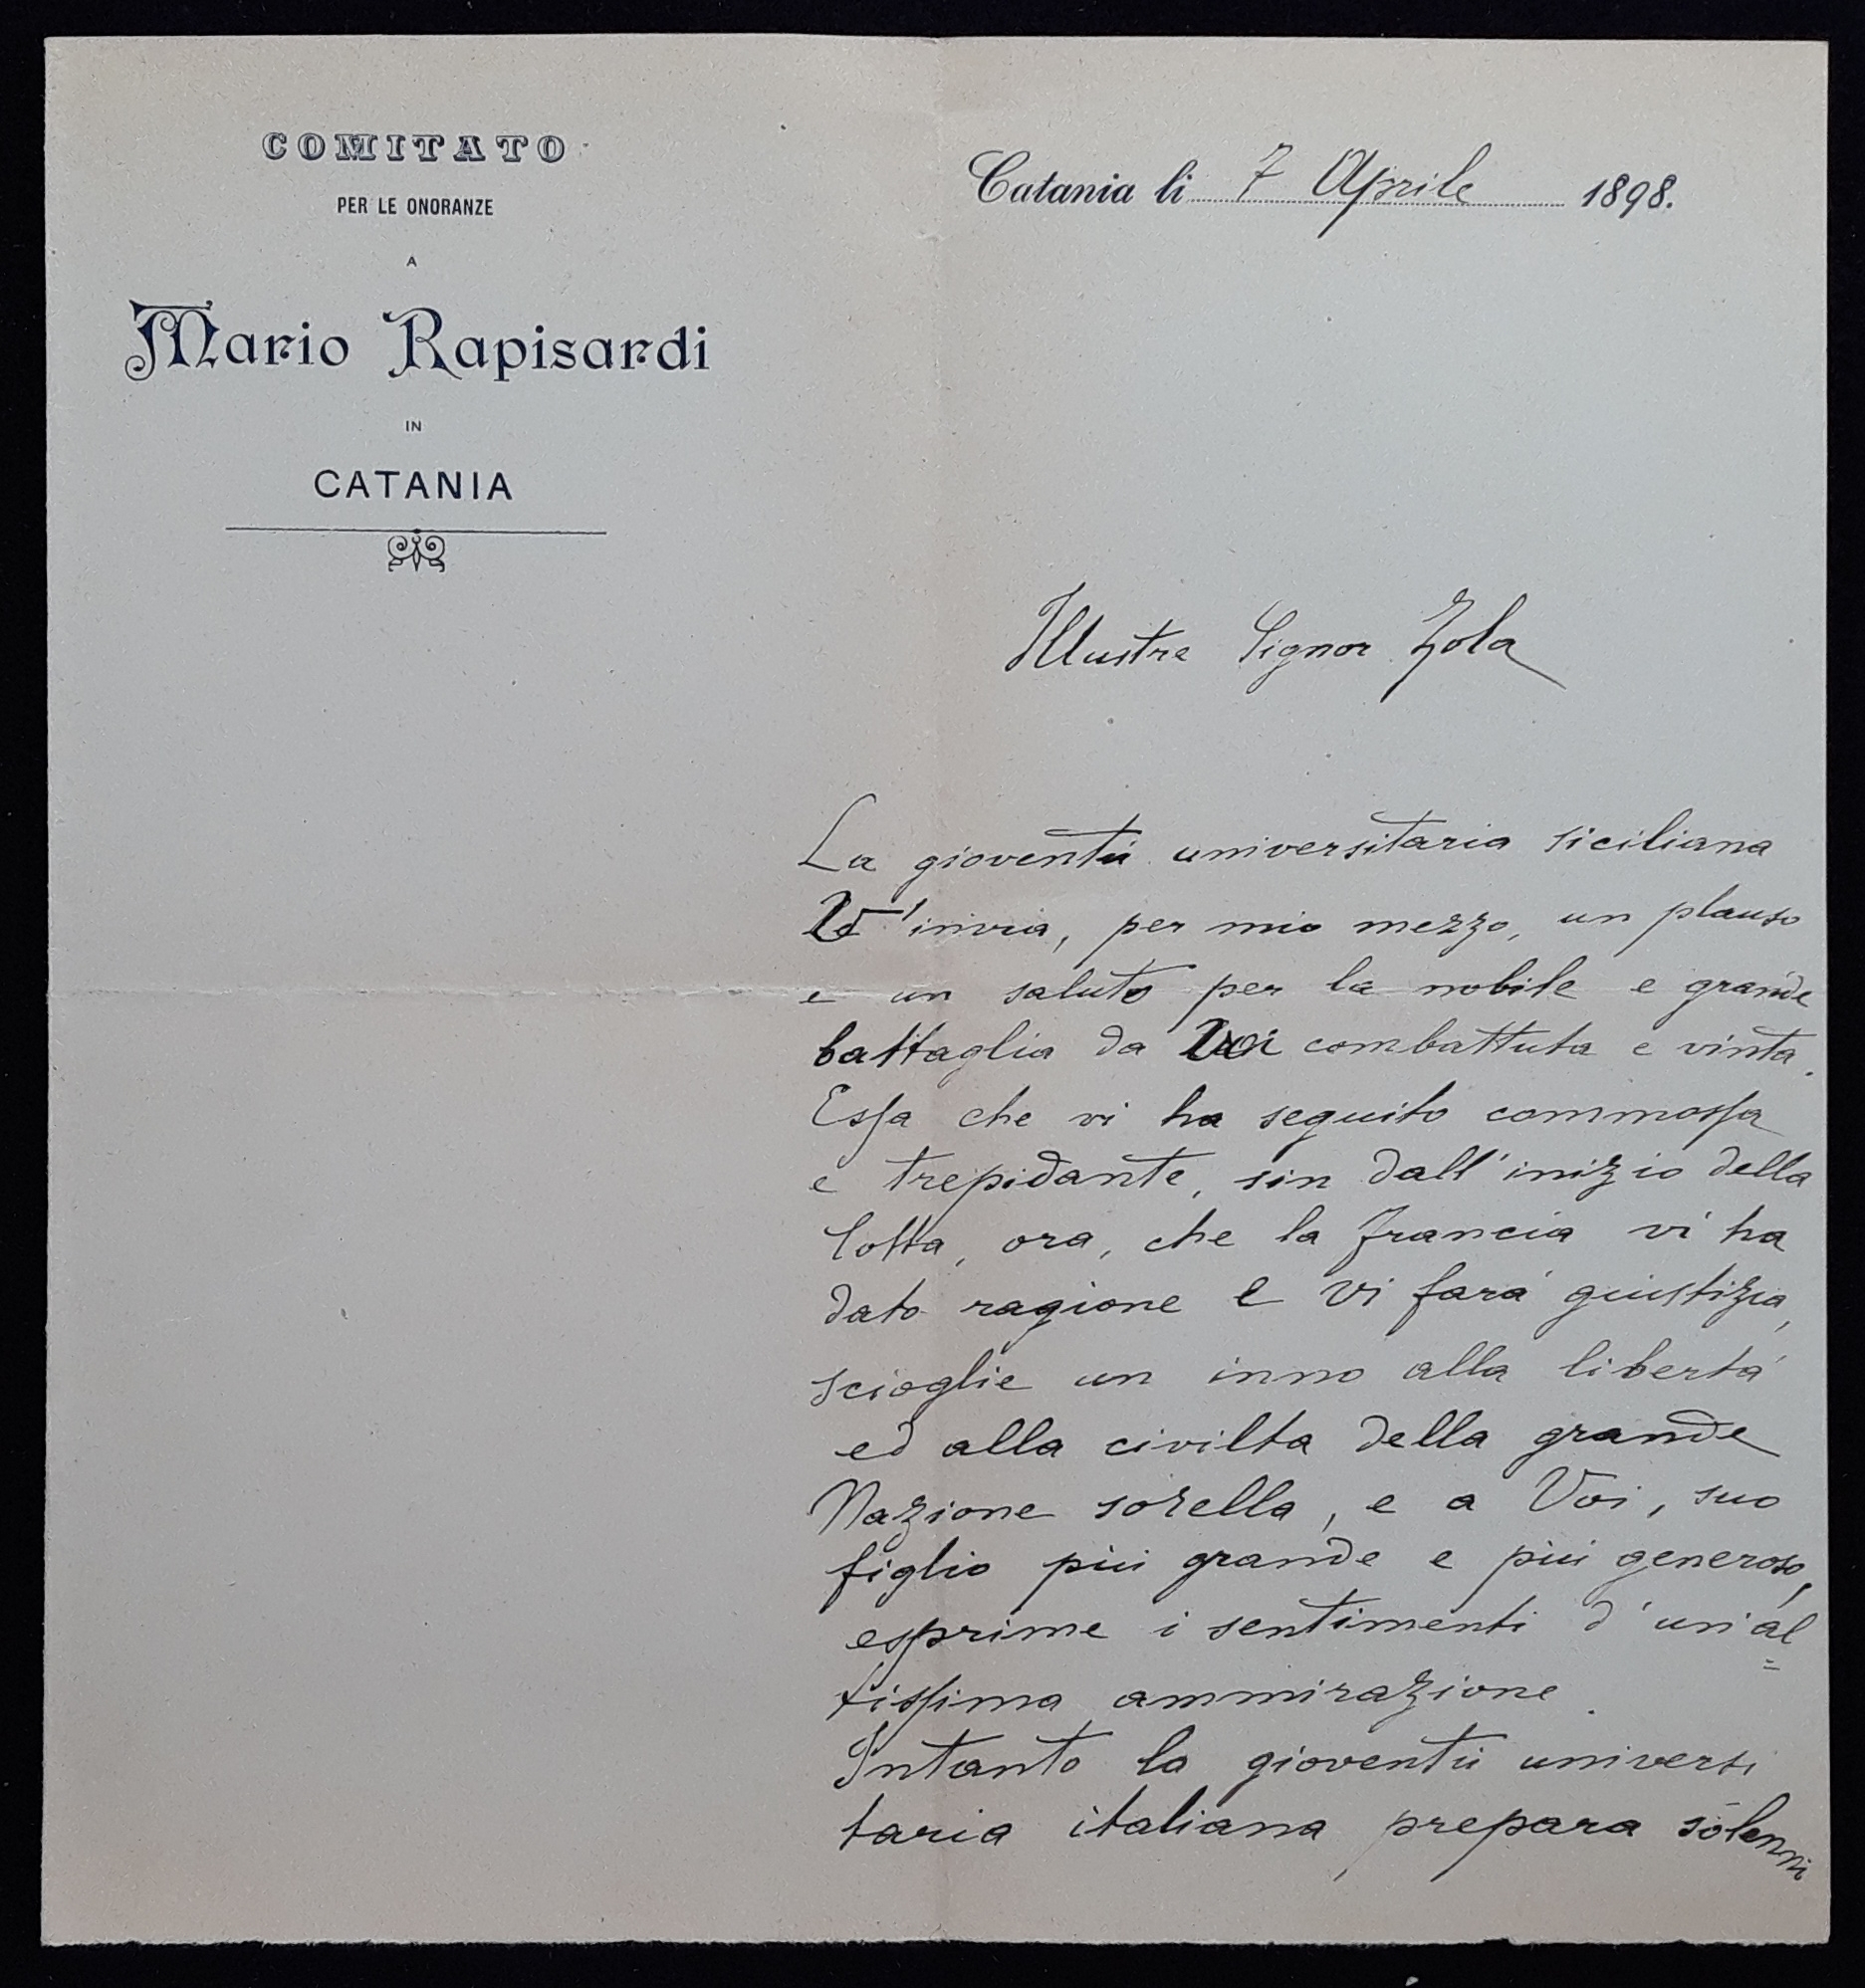 COMITATO
PER LE ONORANZE
A
Mario Rapisardi
IN
CATANIA
Catania li 7 Aprile 1898.
Illustre Signor Zola
La gioventù universitaria siciliana
V'invia, per mio mezzo, un plauso
e un saluto per la nobile e grande
battaglia da Voi combattuta e vinta.
Essa che vi ha seguito commossa
e trepidante, sin dall'inizio della
lotta, ora, che la Francia vi ha
dato ragione e vi farà giustizia,
scioglie un inno alla libertà
ed alla civilta della grande
Nazione sorella, e a Voi, suo
figlio più grande e più generoso,
esprime i sentimenti d'un'al=
tissima ammirazione.
Intanto la gioventù universi
taria italiana prepara solenni